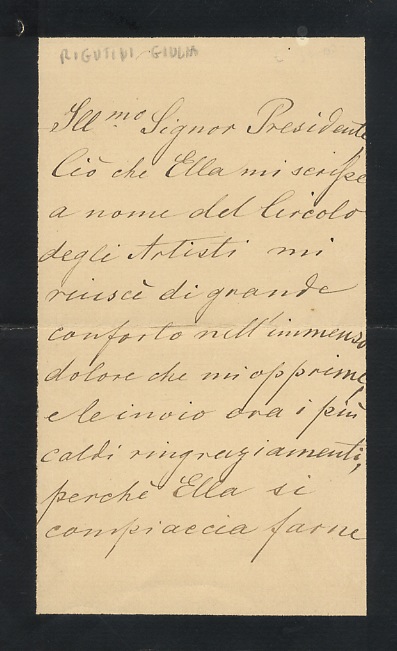 RIGUTINI GIULIA
Ill.mo Signor Presidente
Ciò che Ella mi scrisse
a nome del Circolo
degli Artisti mi
riuscì di grande
conforto nell'immenso
dolore che mi opprime,
e le invio ora i più
caldi ringraziamenti,
perchè Ella si
compiaccia farne